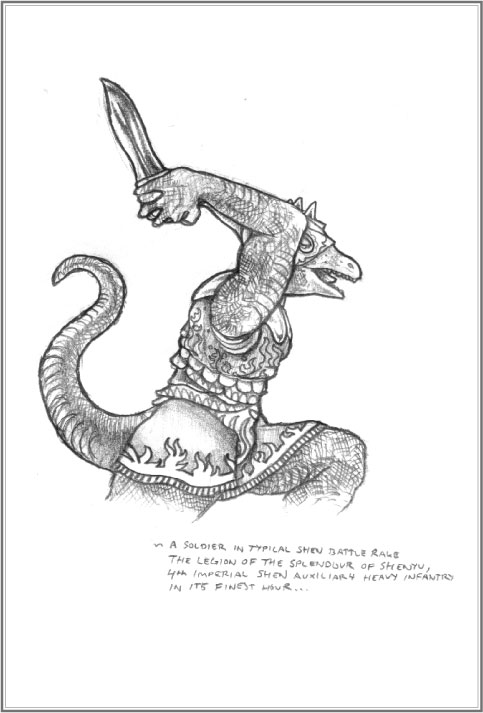 ~ A SOLDIER IN TYPICAL SHEN BATTLE RAGE
THE LEGION OF THE SPLENDOUR OF SHENYU,
4th IMPERIAL SHEN AUXILIARY HEAVY INFANTRY
IN ITS FINEST HOUR...